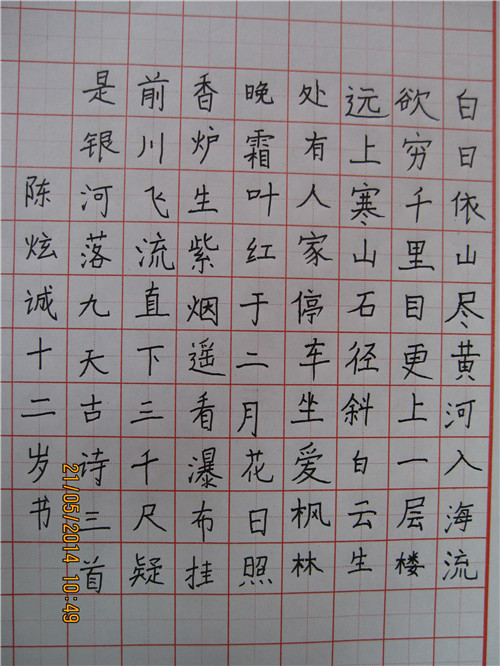 白日依山尽黄河入海流
欲穷千里目更上一层楼
远上寒山石径斜白云生
处有人家停车坐爱枫林
晚霜叶红于二月花日照
香炉生紫烟遥看瀑布挂
前川飞流直下三千尺疑
是银河落九天古诗三首
陈炫诚十二岁书
21/05/2014 10:49